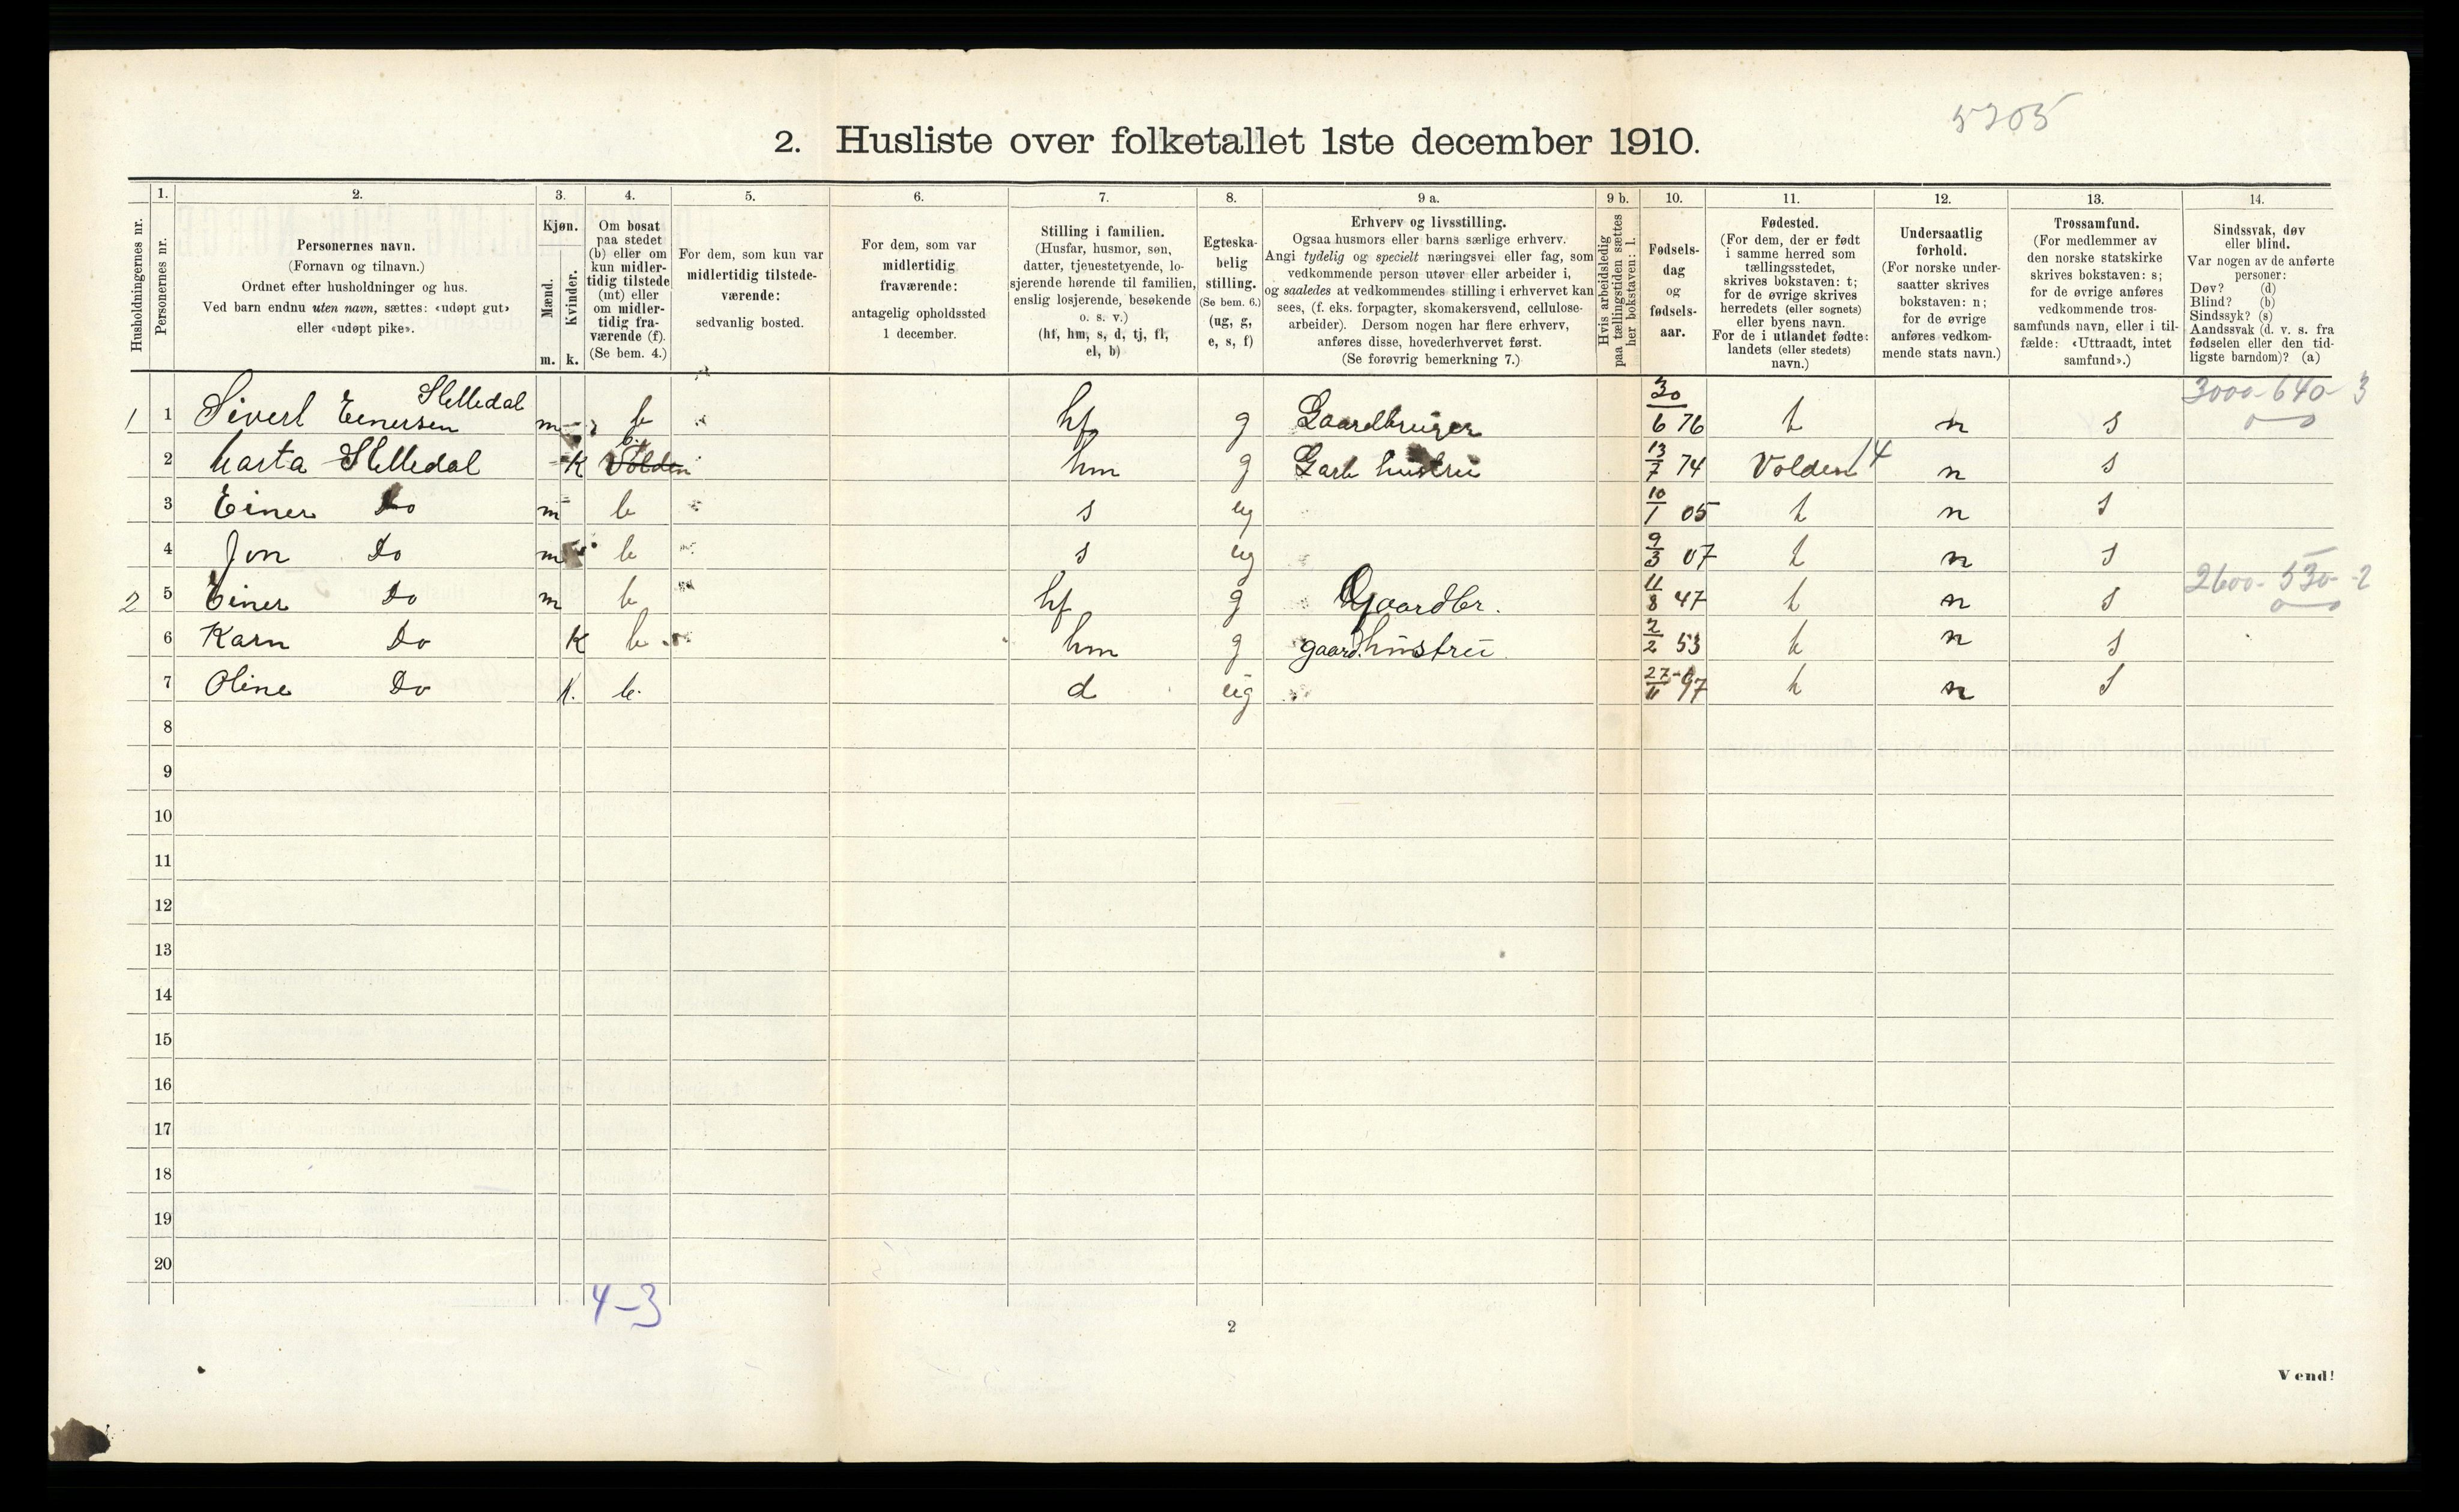 5205
2. Husliste over folketallet 1ste december 1910.
Husholdningernes nr.
1.
Personernes nr.
2.
Personernes navn.
(Fornavn og tilnavn.)
Ordnet efter husholdninger og hus.
Ved barn endnu uten navn, sættes: «udøpt gut»
eller «udøpt pike».
3.
Kjøn.
Mænd.
m.
Kvinder.
k.
4.
Om bosat
paa stedet
(b) eller om
kun midler-
tidig tilstede
(mt) eller
om midler-
tidig fra-
værende (f).
(Se bem. 4.)
5.
For dem, som kun var
midlertidig tilstede-
værende:
sedvanlig bosted.
6.
For dem, som var
midlertidig
fraværende:
antagelig opholdssted
1 december.
7.
Stilling i familien.
(Husfar, husmor, søn,
datter, tjenestetyende, lo-
sjerende hørende til familien,
enslig losjerende, besøkende
o. s. v.)
(hf, hm, s, d, tj, fl,
el, b)
8.
Egteska-
belig
stilling.
(Se bem. 6.)
(ug, g,
e, s, f)
9 a.
Erhverv og livsstilling.
Ogsaa husmors eller barns særlige erhverv.
Angi tydelig og specielt næringsvei eller fag, som
vedkommende person utøver eller arbeider i,
og saaledes at vedkommendes stilling i erhvervet kan
sees, (f. eks. forpagter, skomakersvend, cellulose-
arbeider). Dersom nogen har flere erhverv,
anføres disse, hovederhvervet først.
(Se forøvrig bemerkning 7.)
9 b.
Hvis arbeidsledig
paa tællingstiden sættes
her bokstaven: l.
10.
Fødsels-
dag
og
fødsels-
aar.
11.
Fødested.
(For dem, der er født
i samme herred som
tællingsstedet,
skrives bokstaven: t;
for de øvrige skrives
herredets (eller sognets)
eller byens navn.
For de i utlandet fødte:
landets (eller stedets)
navn.)
12.
Undersaatlig
forhold.
(For norske under-
saatter skrives
bokstaven: n;
for de øvrige
anføres vedkom-
mende stats navn.)
13.
Trossamfund.
(For medlemmer av
den norske statskirke
skrives bokstaven: s;
for de øvrige anføres
vedkommende tros-
samfunds navn, eller i til-
fælde: «Uttraadt, intet
samfund».)
14.
Sindssvak, døv
eller blind.
Var nogen av de anførte
personer:
Døv? (d)
Blind? (b)
Sindssyk? (s)
Aandssvak (d. v. s. fra
fødselen eller den tid-
ligste barndom)? (a)
1 1 Sivert Einersen Slettedal m b hf g Gaardbruger 30/6 76 t n s 3000-640-3
2 Marta Slettedal k b Volden hm g Garb hustru 13/7 74 Volden 14 n s
3 Einer Do m b s ug 10/1 05 t n s
4 Jon Do m b s ug 9/3 07 t n s
2 5 Einer Do m b hf g Gaardbr. 11/8 47 t n s 2600-530-2
6 Karn Do K b hm g gaard.hustru 2/2 53 t n s
7 Oline Do k. b. d ug 27/11 97 t n s
8
9
10
11
12
13
14
15
16
17
18
19
20
4-3
2
Vend!